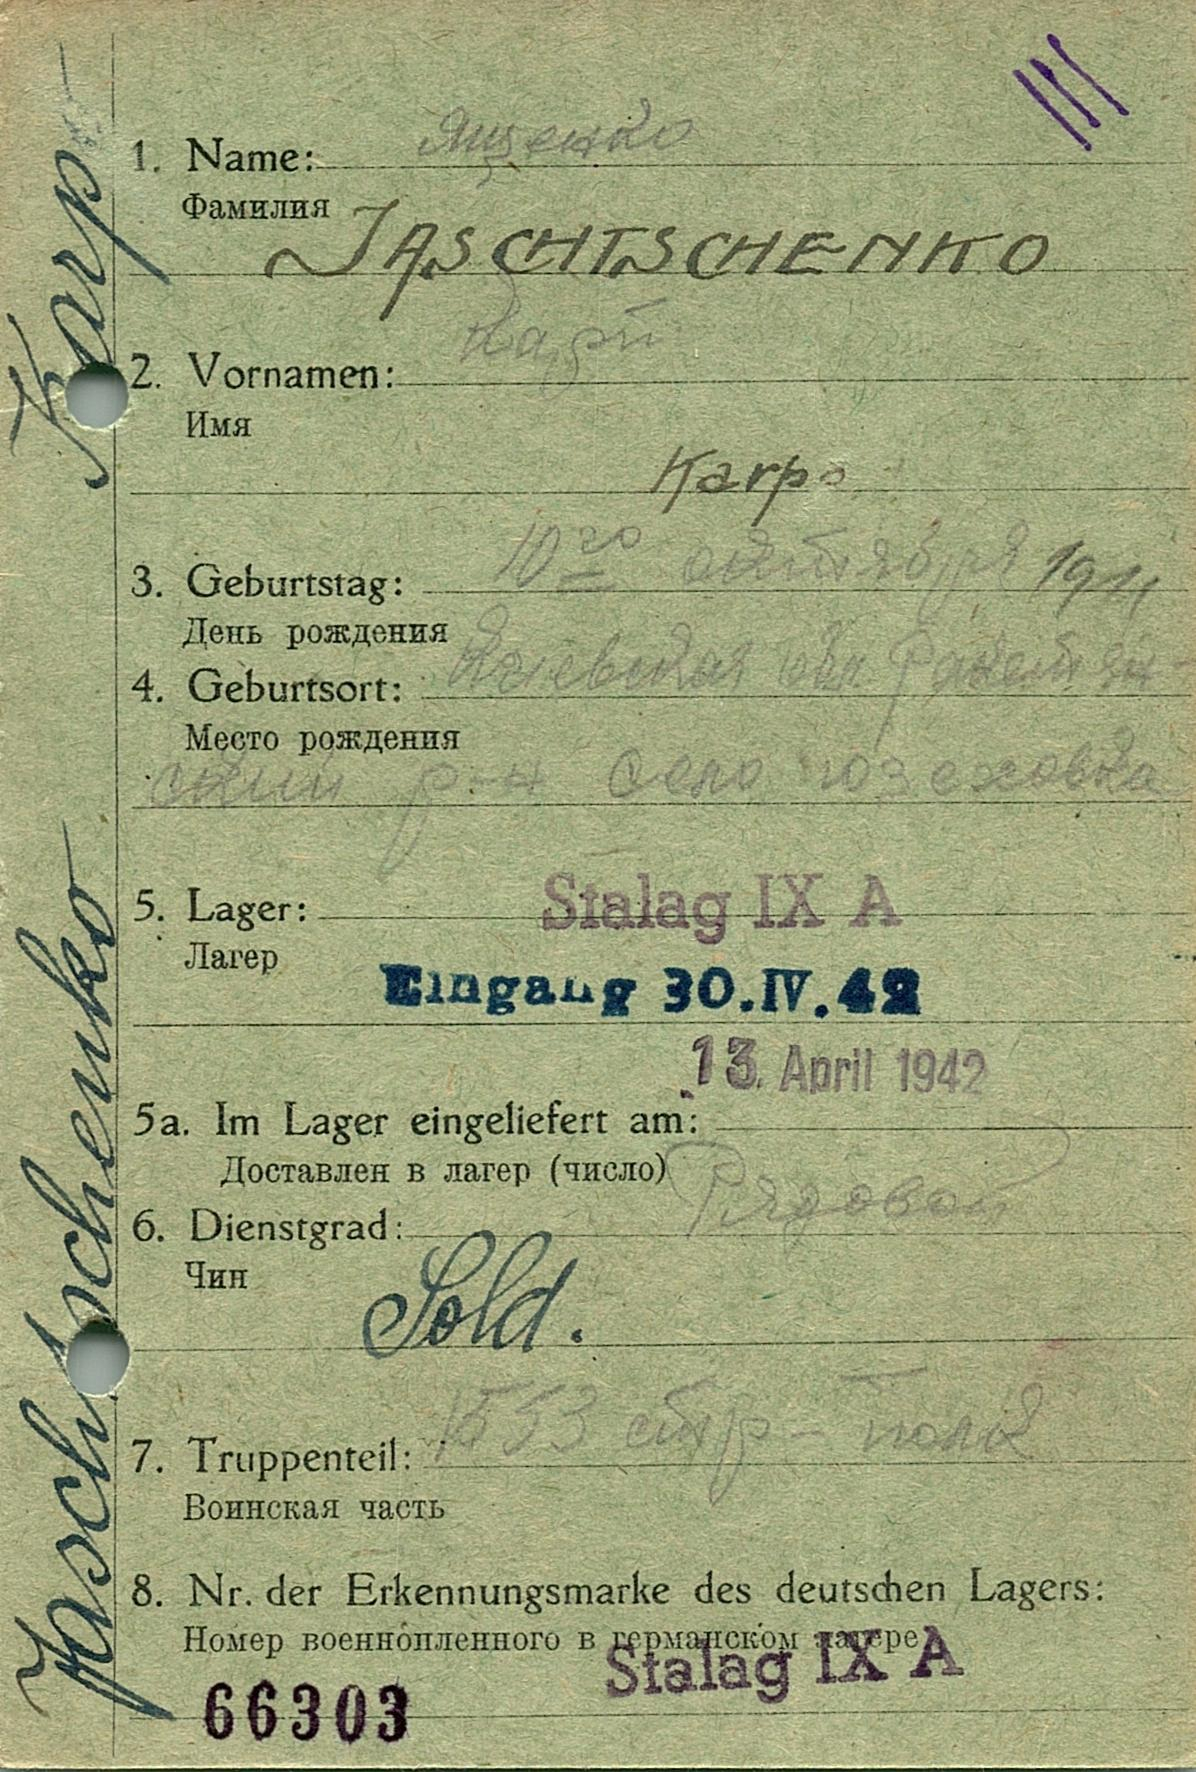 1. Name: Ященко
Фамилия
JASCHTSCHENKO
2. Vornamen: Карп
Имя
Karp
3. Geburtstag: 10го октября 1911
День рождения
4. Geburtsort: Киевская обл Ракетян-
Место рождения
ский р-н село Юзеховка
5. Lager: Stalag IX A
Лагер
Eingang 30.IV.42
13. April 1942
5a. Im Lager eingeliefert am:
Доставлен в лагер (число)
6. Dienstgrad: Рядовой
Чин
Sold.
7. Truppenteil: 1553 стр-полк
Воинская часть
8. Nr. der Erkennungsmarke des deutschen Lagers:
Номер военнопленного в германском лагере
Stalag IX A
66303
Jaschtschenko Karp